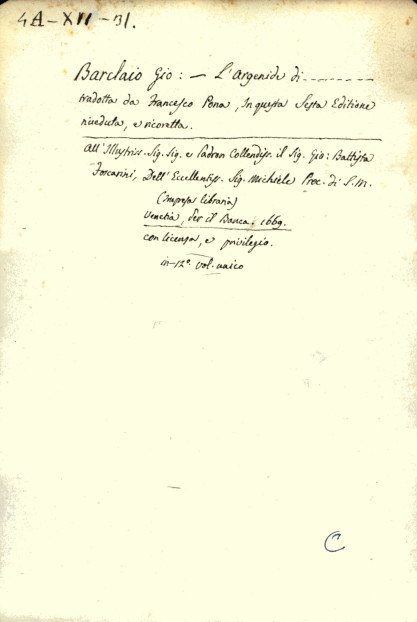 4A-XVI-31.
Barclaio Gio: — L'Argenide di ---------
tradotta da Francesco Pona, In questa Sesta Editione
riueduta, e ricoretta.
All' Illustriss. Sig. Sig. e Padron Collendiss. il Sig. Gio: Battista
Foscarini, Dell' Eccellentiss. Sig. Michiele Proc. di S. M.
(Impresa libraria)
Venetia, Per il Banca. 1669.
con licenza, e privilegio.
in-12°. vol. unico
C